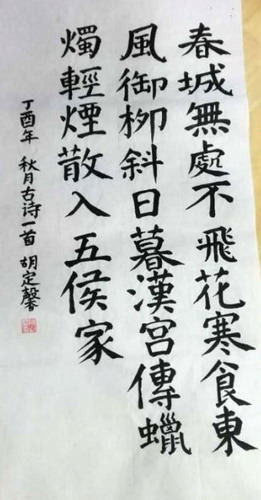 春城無處不飛花寒食東
風御柳斜日暮漢宮傳蠟
燭輕煙散入五侯家
丁酉年 秋月古诗一首 胡定馨